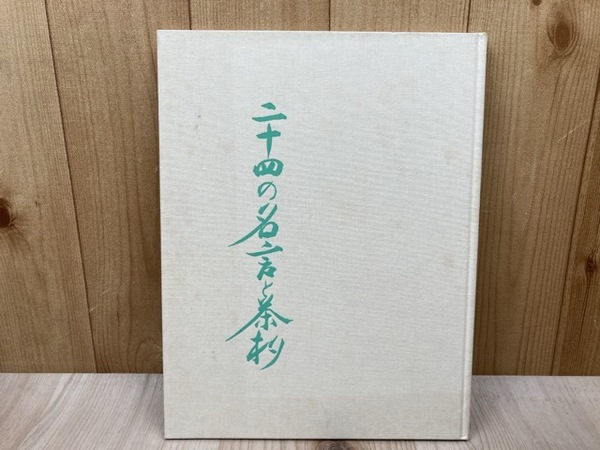 二十四の名言と茶杓